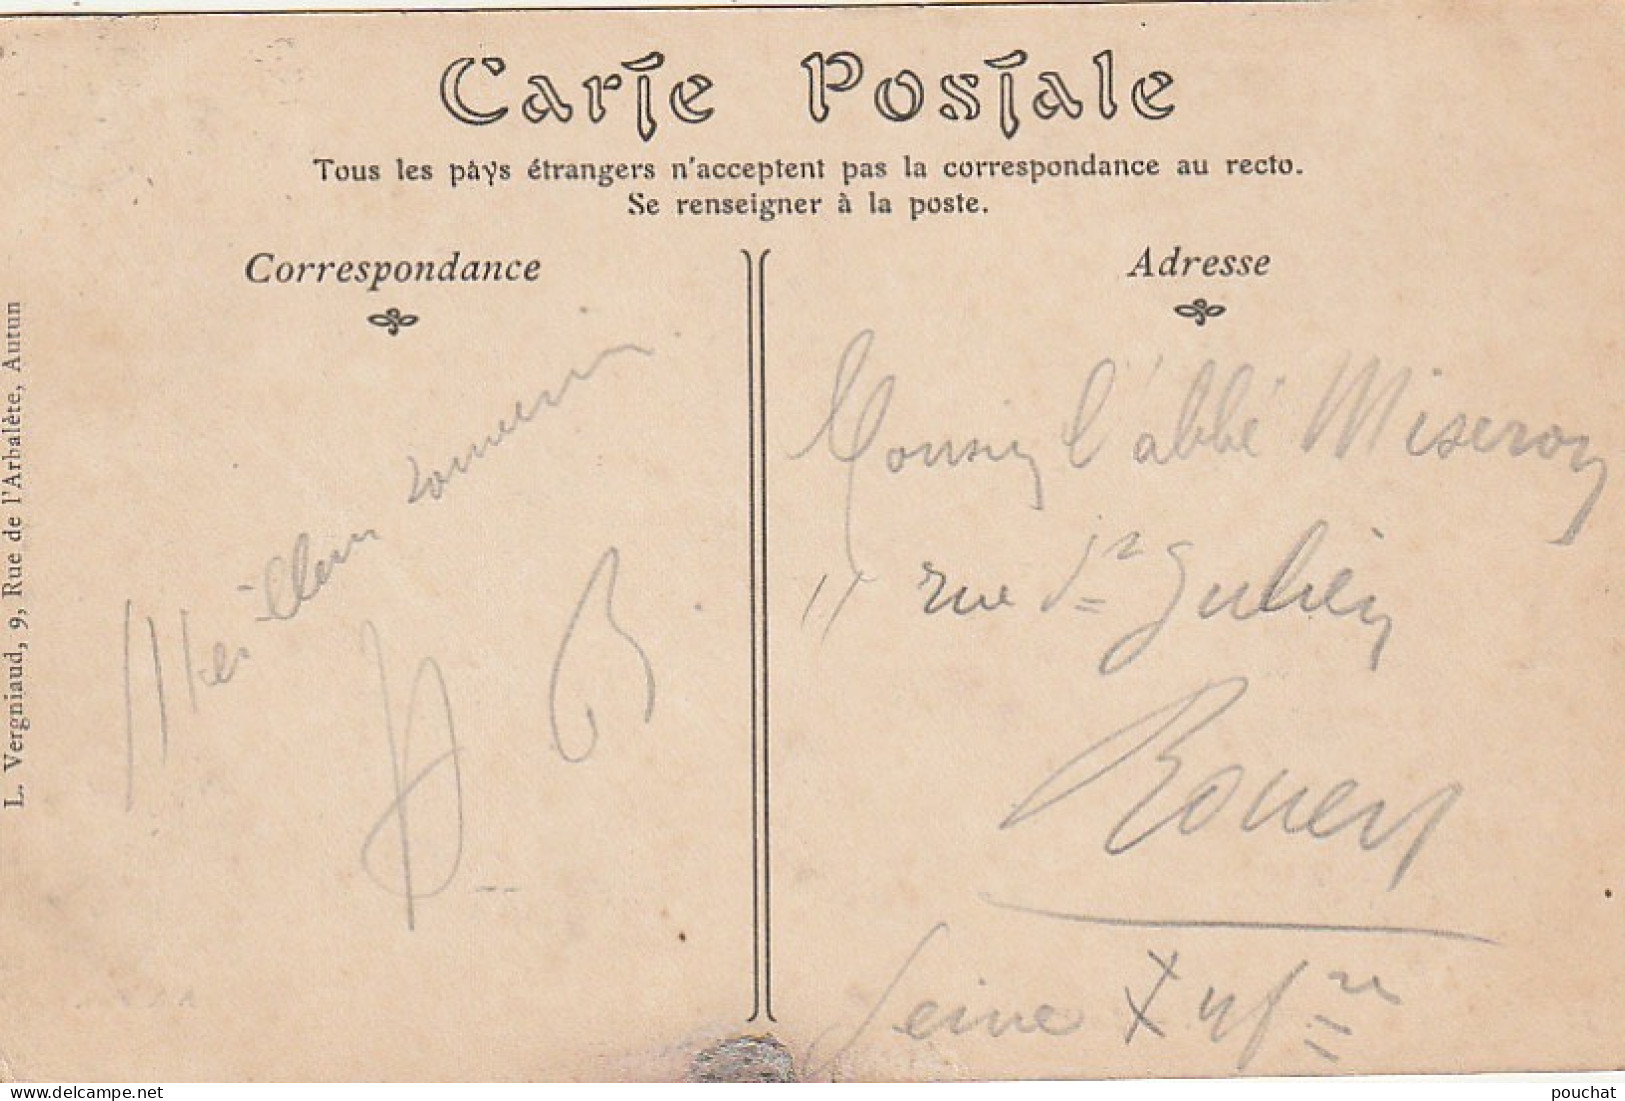 Carte Postale
Tous les pays étrangers n'acceptent pas la correspondance au recto.
Se renseigner à la poste.
Correspondance
Adresse
L. Vergniaud, 9, Rue de l'Arbalète, Autun
Meilleur souvenir
Monsieur l'abbé Miseron
11 rue St Julien
Rouen
Seine Infre
pouchat